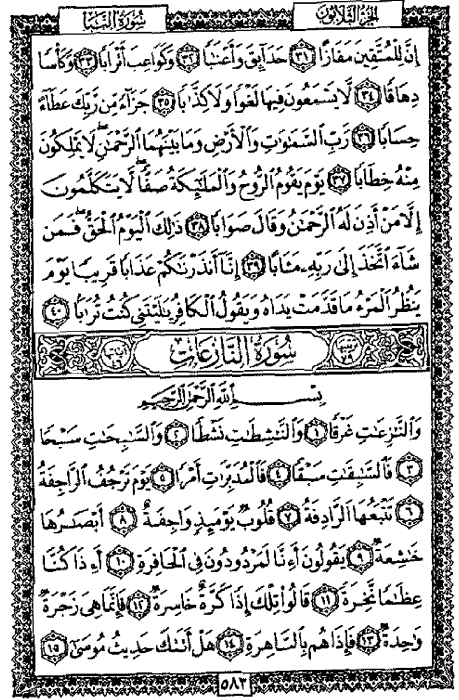 سُورَةُ النَّبَإِ الجُزْءُ الثَّلَاثُونَ
إِنَّ لِلْمُتَّقِينَ مَفَازًا ٣١ حَدَآئِقَ وَأَعْنَٰبًا ٣٢ وَكَوَاعِبَ أَتْرَابًا ٣٣ وَكَأْسًا
دِهَاقًا ٣٤ لَّا يَسْمَعُونَ فِيهَا لَغْوًا وَلَا كِذَّٰبًا ٣٥ جَزَآءً مِّن رَّبِّكَ عَطَآءً
حِسَابًا ٣٦ رَّبِّ ٱلسَّمَٰوَٰتِ وَٱلْأَرْضِ وَمَا بَيْنَهُمَا ٱلرَّحْمَٰنِ لَا يَمْلِكُونَ
مِنْهُ خِطَابًا ٣٧ يَوْمَ يَقُومُ ٱلرُّوحُ وَٱلْمَلَٰٓئِكَةُ صَفًّا لَّا يَتَكَلَّمُونَ
إِلَّا مَنْ أَذِنَ لَهُ ٱلرَّحْمَٰنُ وَقَالَ صَوَابًا ٣٨ ذَٰلِكَ ٱلْيَوْمُ ٱلْحَقُّ فَمَن
شَآءَ ٱتَّخَذَ إِلَىٰ رَبِّهِۦ مَـَٔابًا ٣٩ إِنَّآ أَنذَرْنَٰكُمْ عَذَابًا قَرِيبًا يَوْمَ
يَنظُرُ ٱلْمَرْءُ مَا قَدَّمَتْ يَدَاهُ وَيَقُولُ ٱلْكَافِرُ يَٰلَيْتَنِى كُنتُ تُرَٰبًۢا ٤٠
سُورَةُ النَّازِعَاتِ
بِسْمِ ٱللَّهِ ٱلرَّحْمَٰنِ ٱلرَّحِيمِ
وَٱلنَّٰزِعَٰتِ غَرْقًا ١ وَٱلنَّٰشِطَٰتِ نَشْطًا ٢ وَٱلسَّٰبِحَٰتِ سَبْحًا
٣ فَٱلسَّٰبِقَٰتِ سَبْقًا ٤ فَٱلْمُدَبِّرَٰتِ أَمْرًا ٥ يَوْمَ تَرْجُفُ ٱلرَّاجِفَةُ
٦ تَتْبَعُهَا ٱلرَّادِفَةُ ٧ قُلُوبٌ يَوْمَئِذٍ وَاجِفَةٌ ٨ أَبْصَٰرُهَا
خَٰشِعَةٌ ٩ يَقُولُونَ أَءِنَّا لَمَرْدُودُونَ فِى ٱلْحَافِرَةِ ١٠ أَءِذَا كُنَّا
عِظَٰمًا نَّخِرَةً ١١ قَالُوا۟ تِلْكَ إِذًا كَرَّةٌ خَاسِرَةٌ ١٢ فَإِنَّمَا هِىَ زَجْرَةٌ
وَٰحِدَةٌ ١٣ فَإِذَا هُم بِٱلسَّاهِرَةِ ١٤ هَلْ أَتَىٰكَ حَدِيثُ مُوسَىٰٓ ١٥
٥٨٣